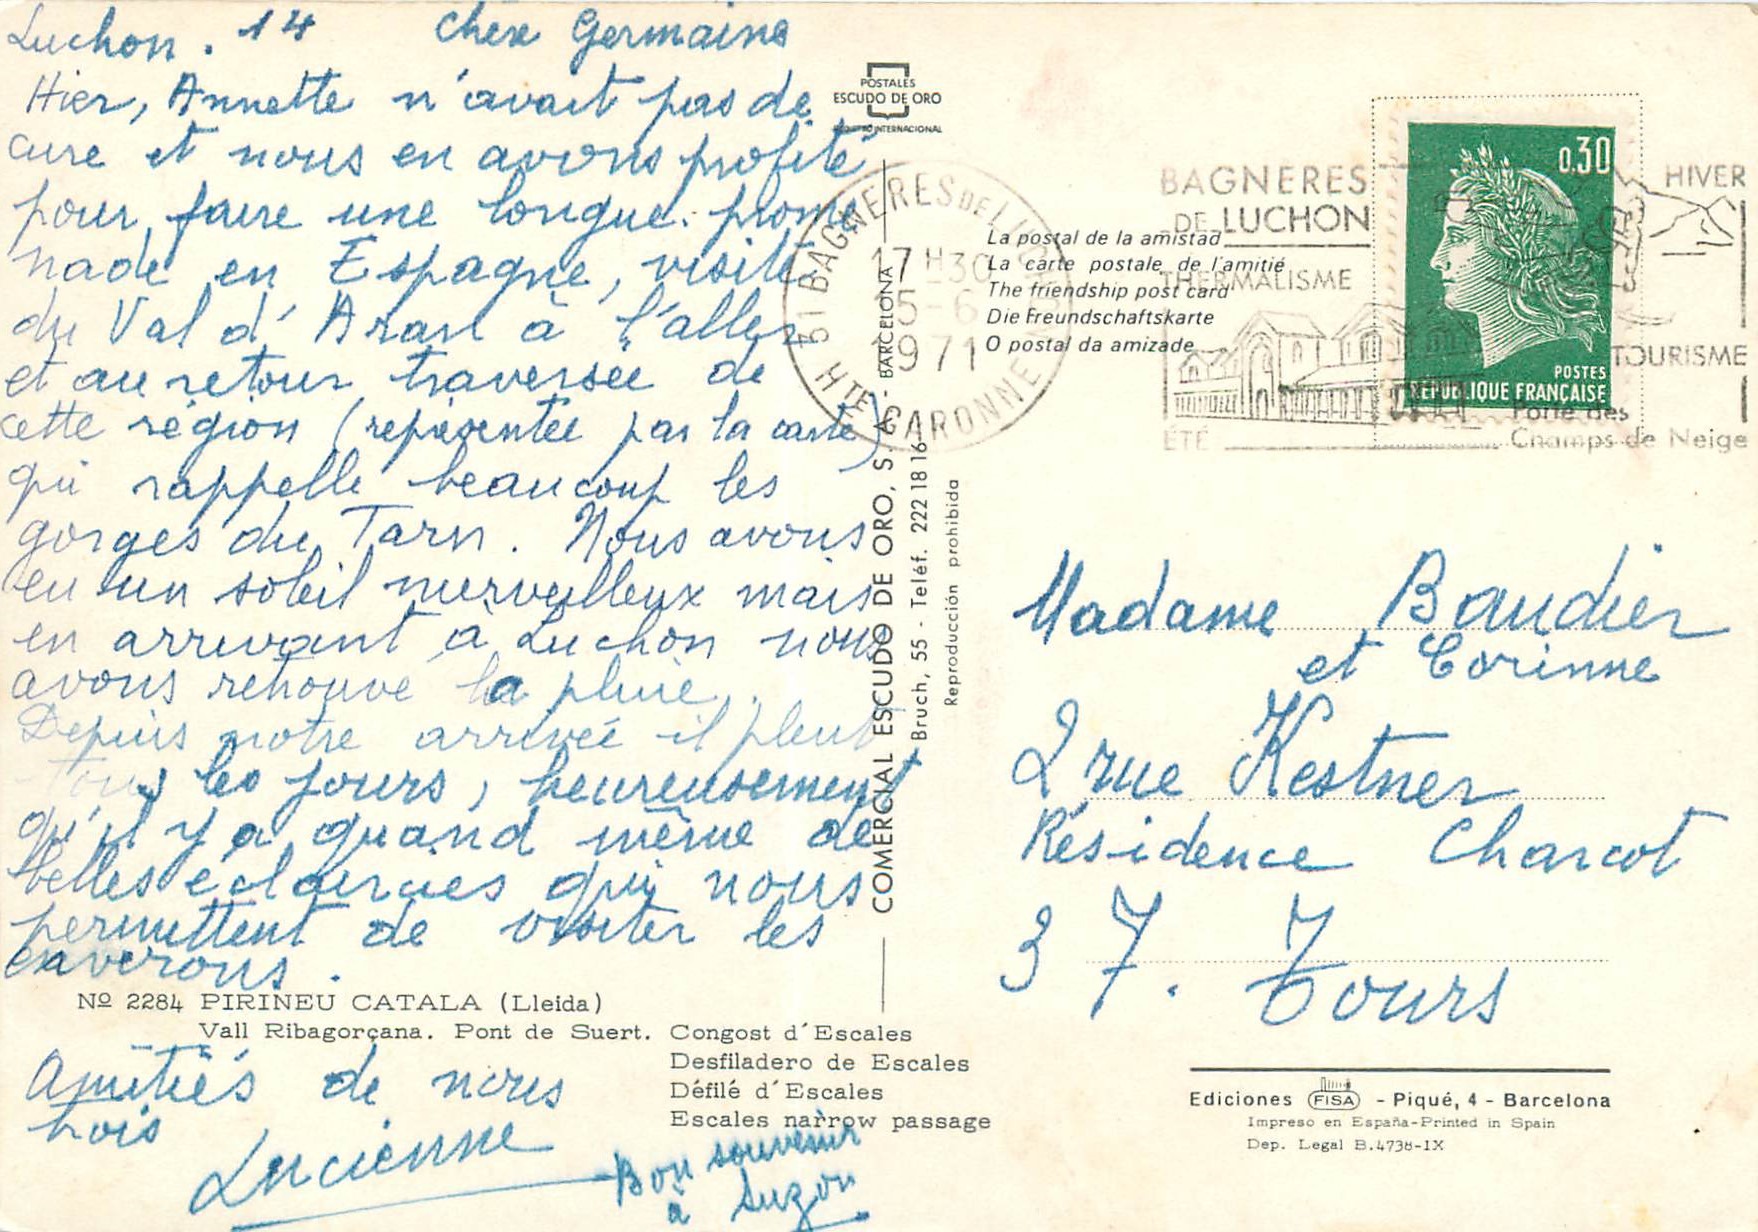 Luchon. 14 Chère Germaine
Hier, Annette n'avait pas de
cure et nous en avons profité
pour faire une longue prome
nade en Espagne, visite
du Val d'Aran à l'aller
et au retour traversée de
cette région (représentée par la carte)
qui rappelle beaucoup les
gorges du Tarn. Nous avons
eu un soleil merveilleux mais
en arrivant à Luchon nous
avons retrouvé la pluie.
Depuis notre arrivée il pleut
tous les jours, heureusement
qu'il y a quand même de
belles éclaircies qui nous
permettent de visiter les
environs.
Nº 2284 PIRINEU CATALA (Lleida)
Vall Ribagorçana. Pont de Suert. Congost d'Escales
Desfiladero de Escales
Défilé d'Escales
Escales narrow passage
Amitiés de nous
trois
Lucienne
Bon souvenir
à Suzon
POSTALES
ESCUDO DE ORO
REGISTRO INTERNACIONAL
COMERCIAL ESCUDO DE ORO, S. A. - BARCELONA
Bruch, 55 - Teléf. 222 18 16
Reproducción prohibida
31 BAGNERES DE LUCHON
17 H 30
15-6
1971
HTE GARONNE
La postal de la amistad
La carte postale de l'amitié
The friendship post card
Die Freundschaftskarte
O postal da amizade
BAGNERES
DE LUCHON
THERMALISME
ÉTÉ
HIVER
TOURISME
Porte des
Champs de Neige
0,30
POSTES
RÉPUBLIQUE FRANÇAISE
Madame Baudier
et Corinne
2 rue Kestner
Résidence Charcot
37. Tours
Ediciones FISA - Piqué, 4 - Barcelona
Impreso en España-Printed in Spain
Dep. Legal B.4738-IX